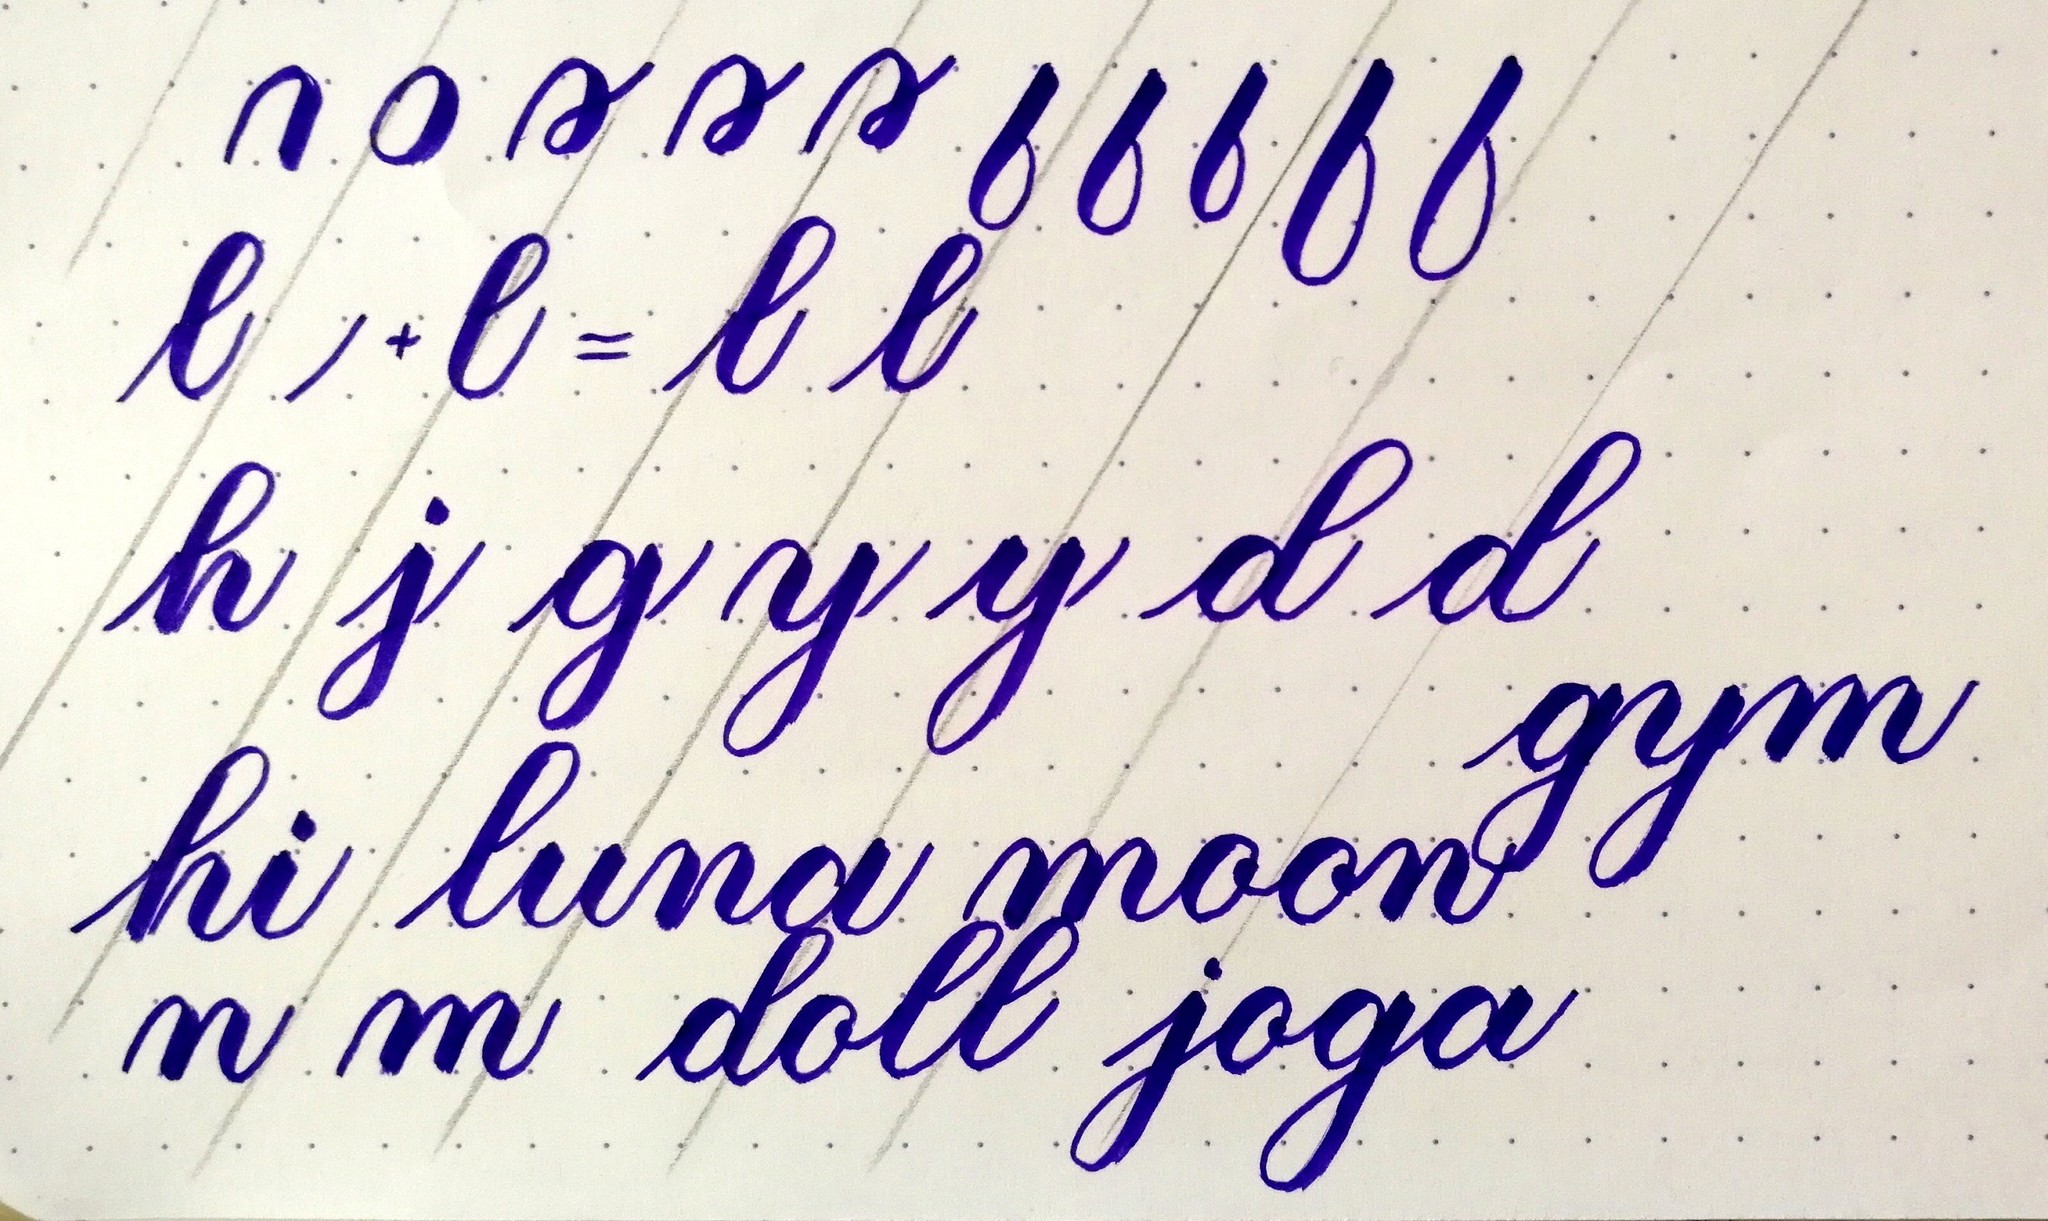 l + l = l l
h j g y y d d
gym
hi luna moon
n m doll joga